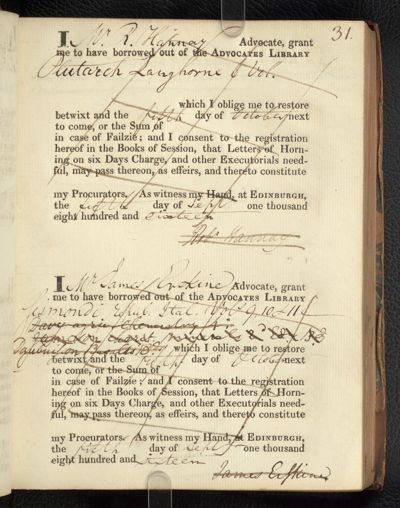 31.
I Mr. R. Hannay Advocate, grant
me to have borrowed out of the ADVOCATES LIBRARY
Plutarch Langhorne 6 Vol.
which I oblige me to restore
betwixt and the fifth day of October next
to come, or the Sum of
in case of Failzie; and I consent to the registration
hereof in the Books of Session, that Letters of Horn-
ing on six Days Charge, and other Executorials need-
ful, may pass thereon, as effeirs, and thereto constitute
my Procurators. As witness my Hand, at EDINBURGH,
the fifth day of Sept one thousand
eight hundred and sixteen
Robt Hannay
I Mr James Erskine Advocate, grant
me to have borrowed out of the ADVOCATES LIBRARY
Sismondi Repub. Ital. 9. 10. & 11
which I oblige me to restore
betwixt and the fifth day of October next
to come, or the Sum of
in case of Failzie; and I consent to the registration
hereof in the Books of Session, that Letters of Horn-
ing on six Days Charge, and other Executorials need-
ful, may pass thereon, as effeirs, and thereto constitute
my Procurators. As witness my Hand, at EDINBURGH,
the fifth day of Sept one thousand
eight hundred and sixteen
James Erskine